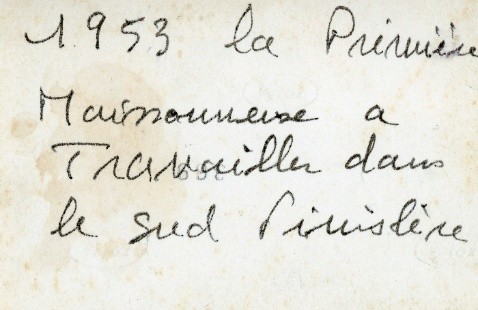 1953 la Première
Moissonneuse a
Travailler dans
le sud Finistère